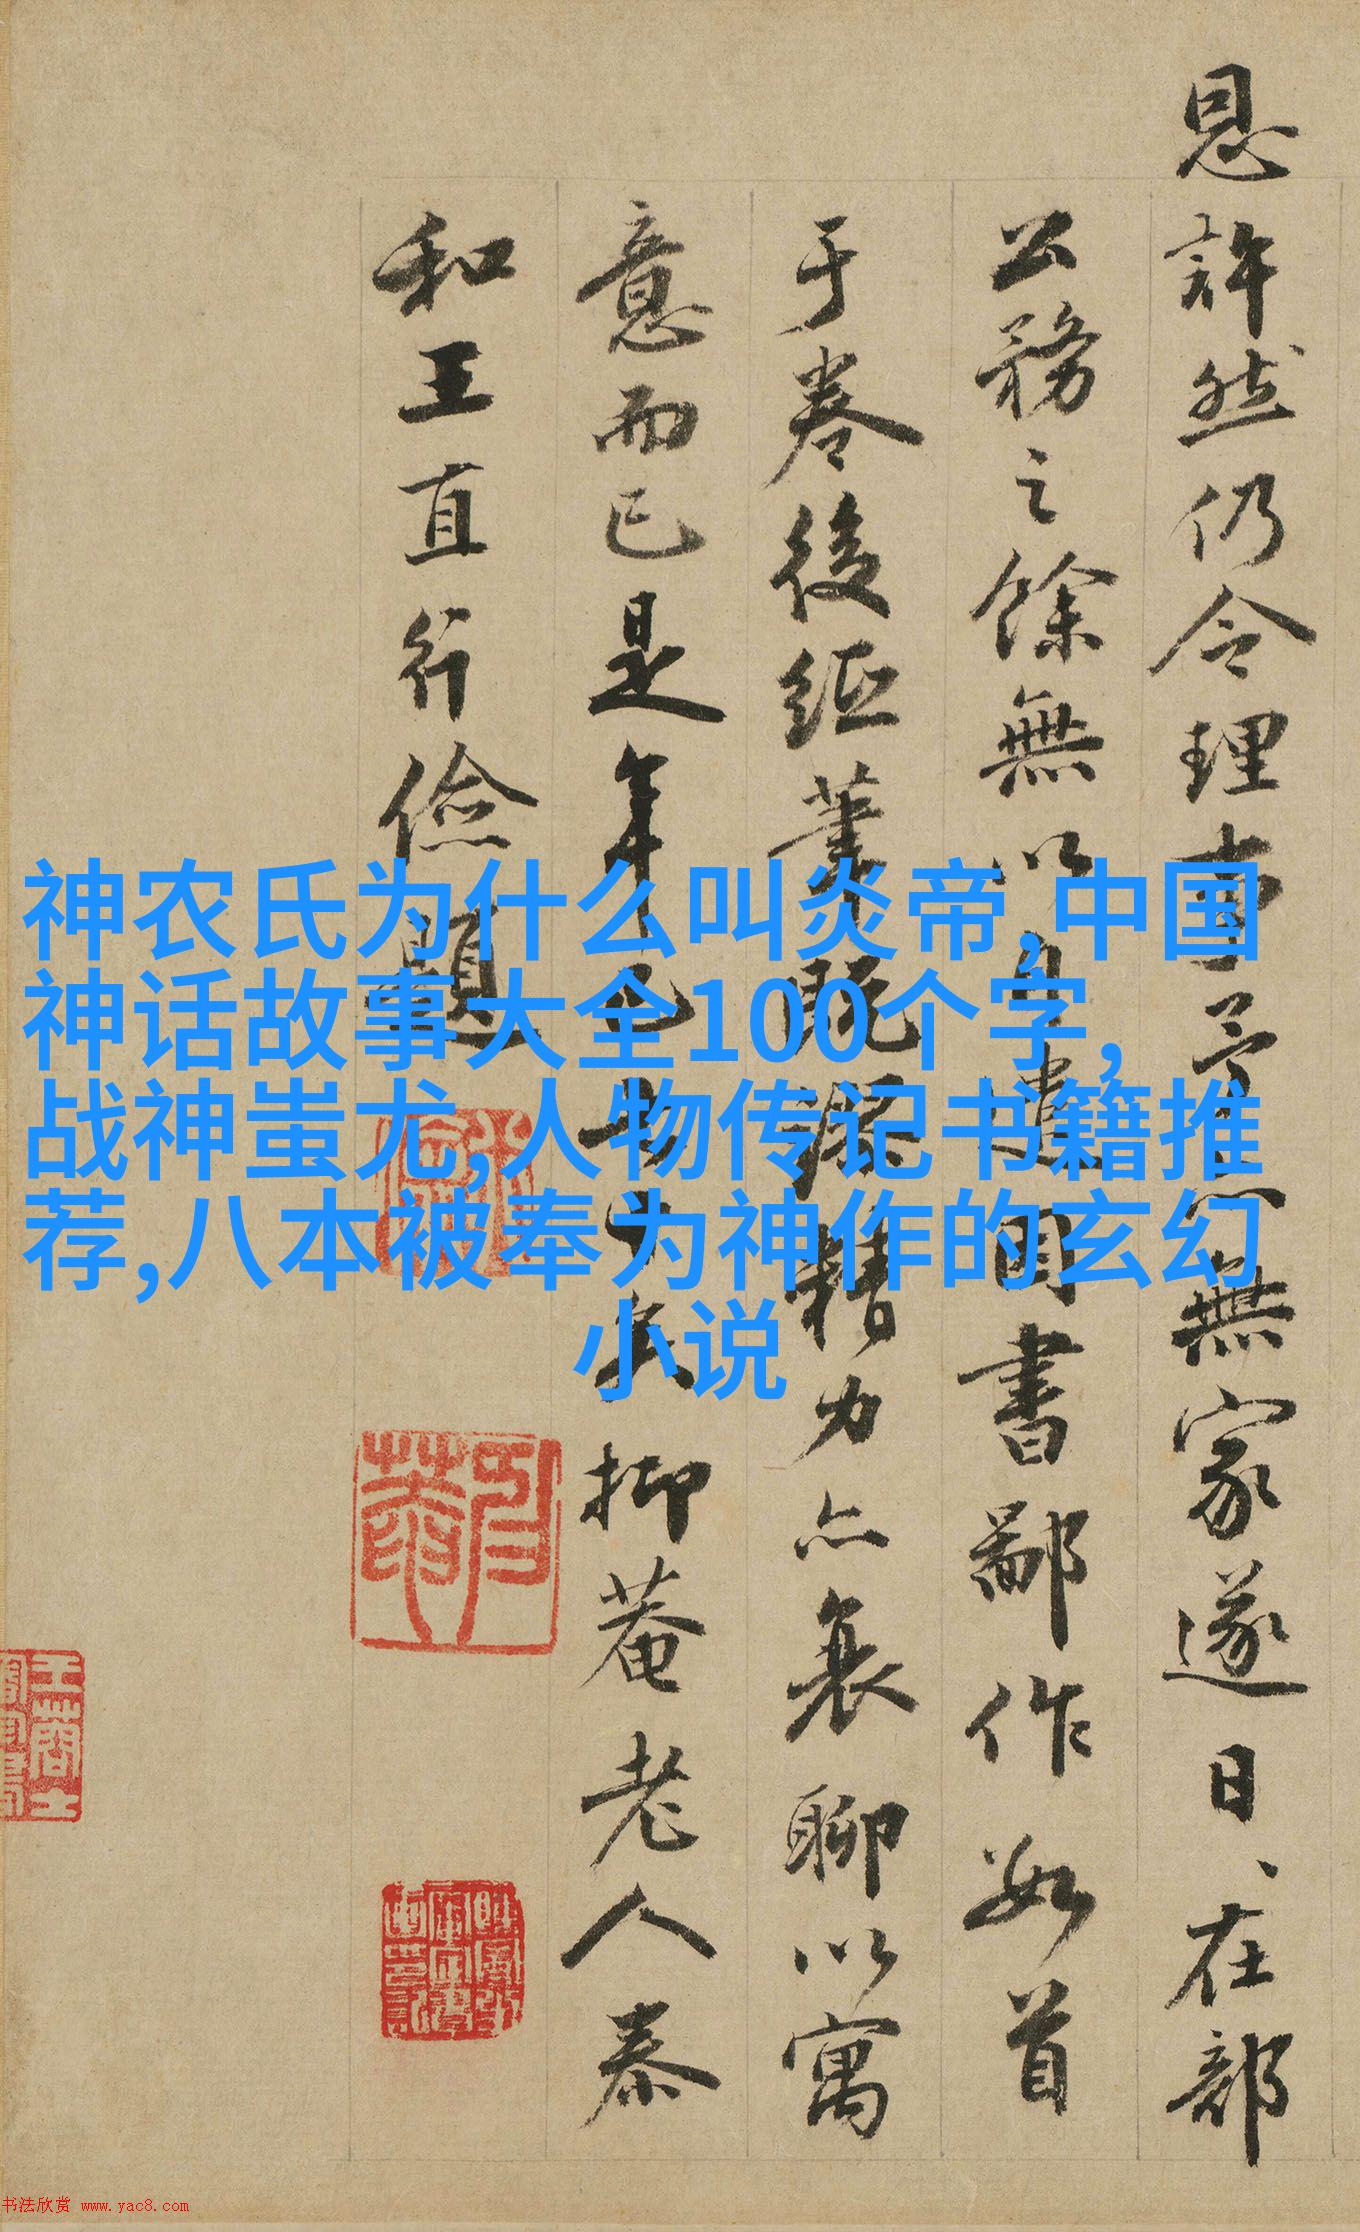 恩許然仍令理事予以無家遂日、在部
公務之餘無以自遣因書鄙作数首
于卷後紙筆既精力亦衰聊以寓
意而已是年也抑菴老人泰
和王直行儉題
神农氏为什么叫炎帝,中国
神话故事大全100个字,
战神蚩尤,人物传记书籍推
荐,八本被奉为神作的玄幻
小说
书法欣赏 www.yac8.com